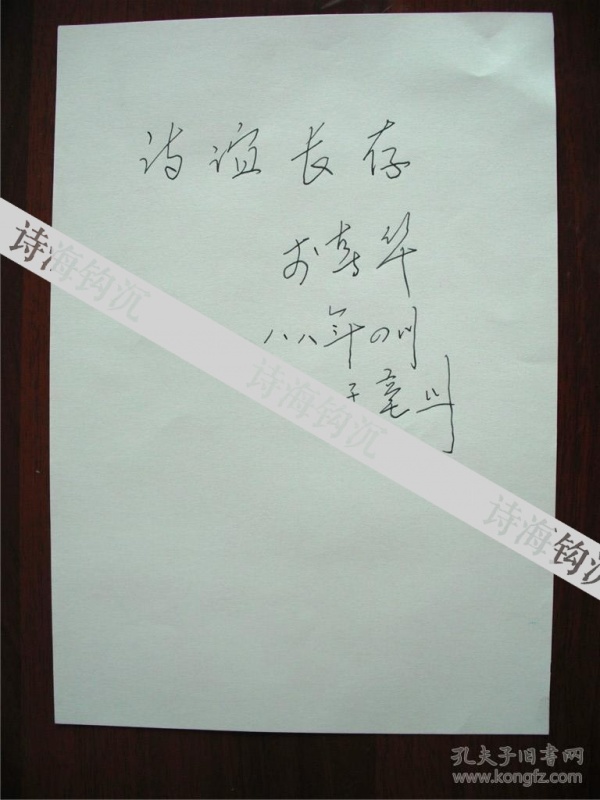 诗谊长存
诗海钩沉
八八年四月
诗海钩沉
于亳州
诗海钩沉
孔夫子旧书网
www.kongfz.com